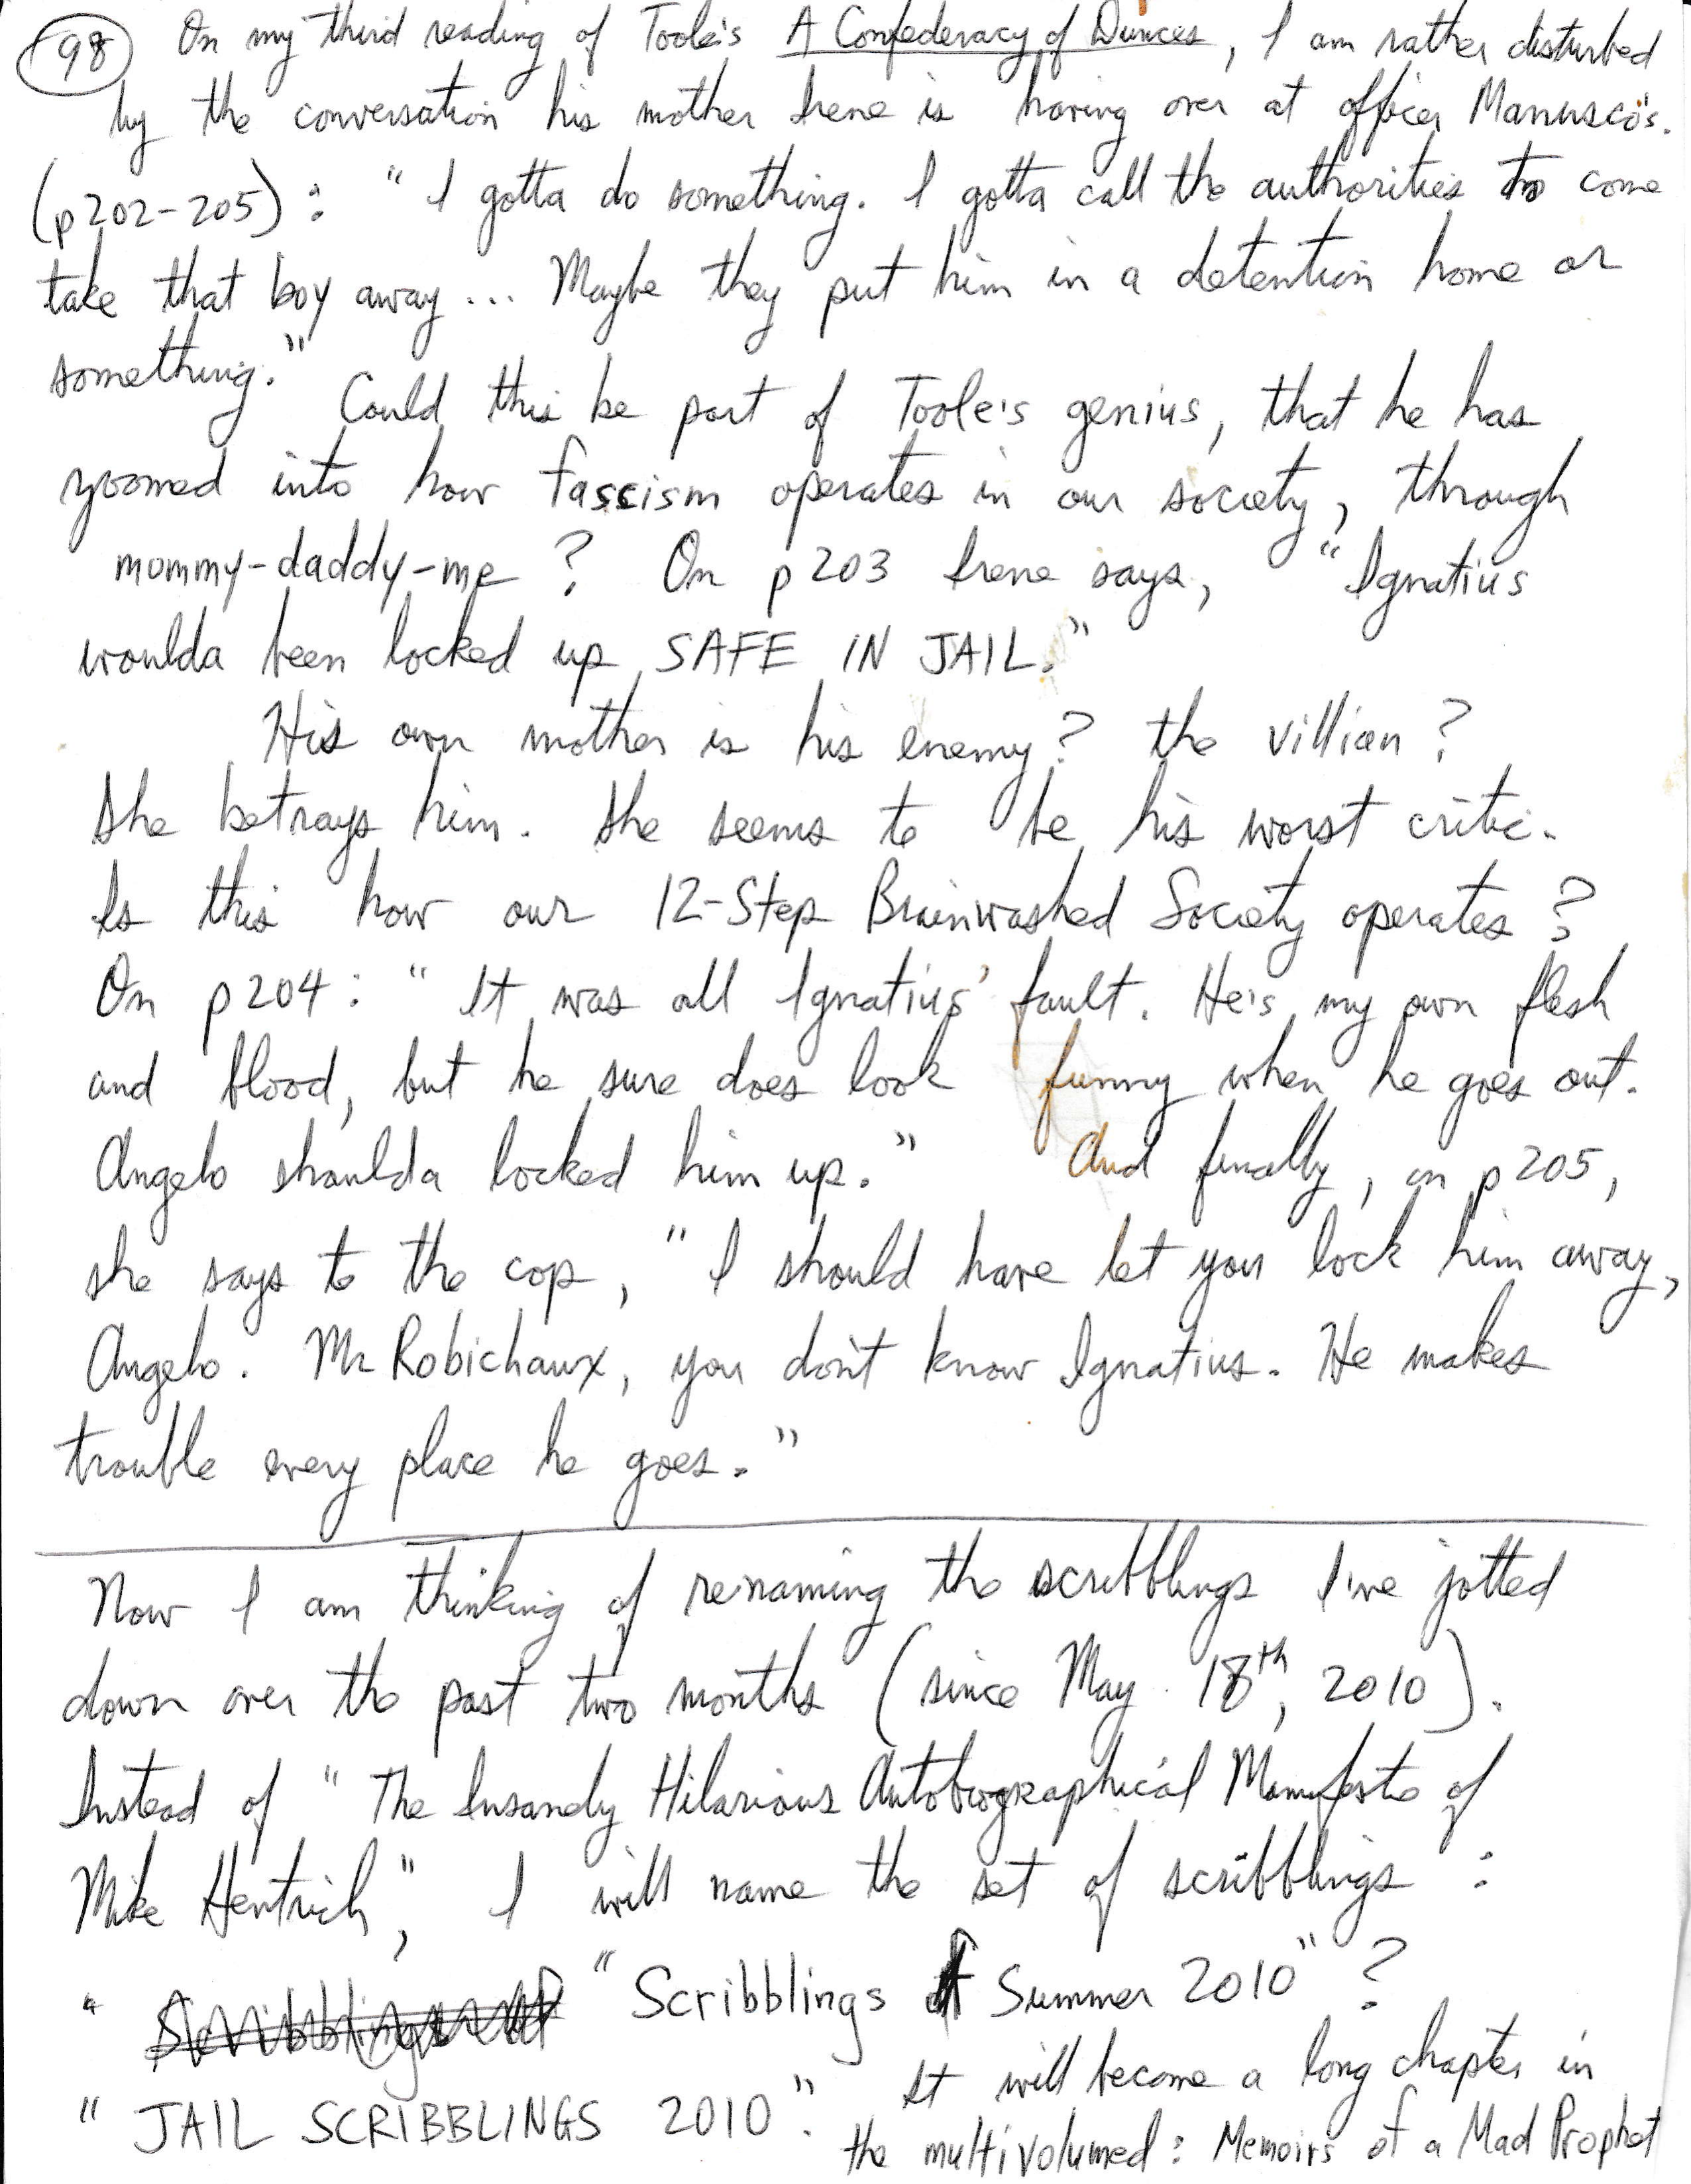 98 On my third reading of Toole's A Confederacy of Dunces, I am rather disturbed
by the conversation his mother Irene is having over at officer Manusco's.
(p202-205): "I gotta do something. I gotta call the authorities to come
take that boy away... Maybe they put him in a detention home or
something." Could this be part of Toole's genius, that he has
zoomed into how fascism operates in our society, through
mommy-daddy-me? On p203 Irene says, "Ignatius
woulda been locked up SAFE IN JAIL."
His own mother is his enemy? the villian?
She betrays him. She seems to be his worst critic.
Is this how our 12-Step Brainwashed Society operates?
On p204: "It was all Ignatius' fault. He's my own flesh
and blood, but he sure does look funny when he goes out.
Angelo shoulda locked him up." And finally, on p205,
she says to the cop, "I should have let you lock him away,
Angelo. Mr Robichaux, you don't know Ignatius. He makes
trouble every place he goes."
Now I am thinking of renaming the scribblings I've jotted
down over the past two months (since May 18th, 2010).
Instead of "The Insanely Hilarious Autobiographical Manifesto of
Mike Hentrich", I will name the set of scribblings:
" Scribblings of "Scribblings of Summer 2010"?
"JAIL SCRIBBLINGS 2010". It will become a long chapter in
the multivolumed: Memoirs of a Mad Prophet